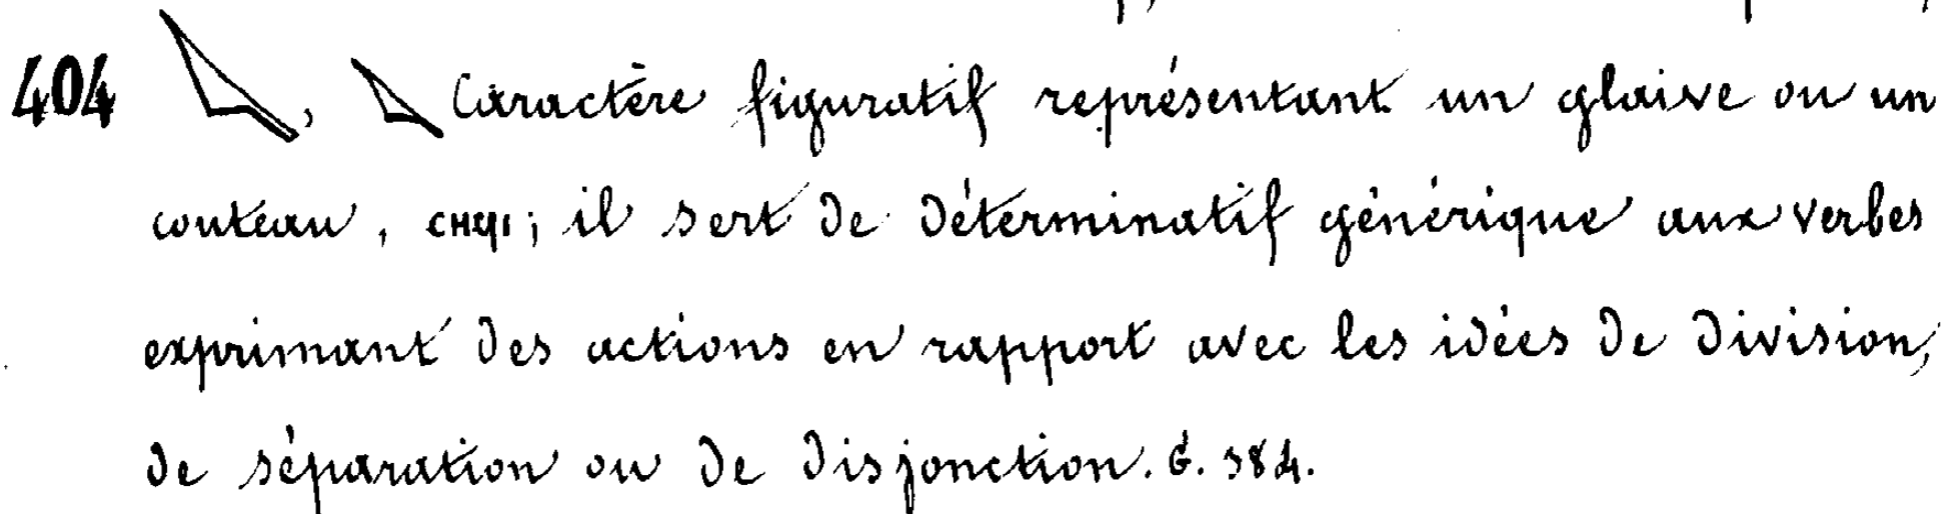 404 𓌪, 𓌪 Caractère figuratif représentant un glaive ou un
couteau, ⲥⲏϥⲓ; il sert de déterminatif générique aux verbes
exprimant des actions en rapport avec les idées de division,
de séparation ou de disjonction. G. 384.